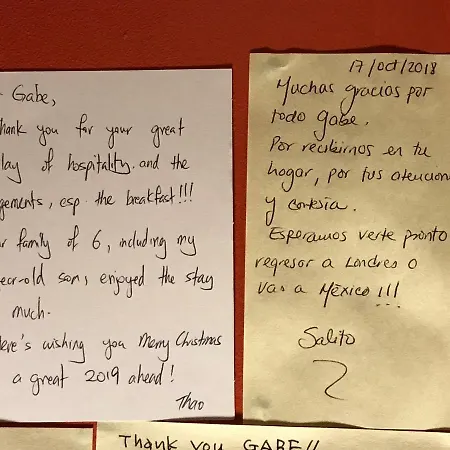 Gabe,
hank you for your great
lay of hospitality and the
gements, esp. the breakfast!!!
r family of 6, including my
ear-old son, enjoyed the stay
much.
ere's wishing you Merry Christmas
a great 2019 ahead!
Thao
17/oct/2018
Muchas gracias por
todo Gabe.
Por recibirnos en tu
hogar, por tus atencion
y cortesía.
Esperamos verte pronto
regresar a Londres o
vas a México!!!
Salito
Thank you GABE!!